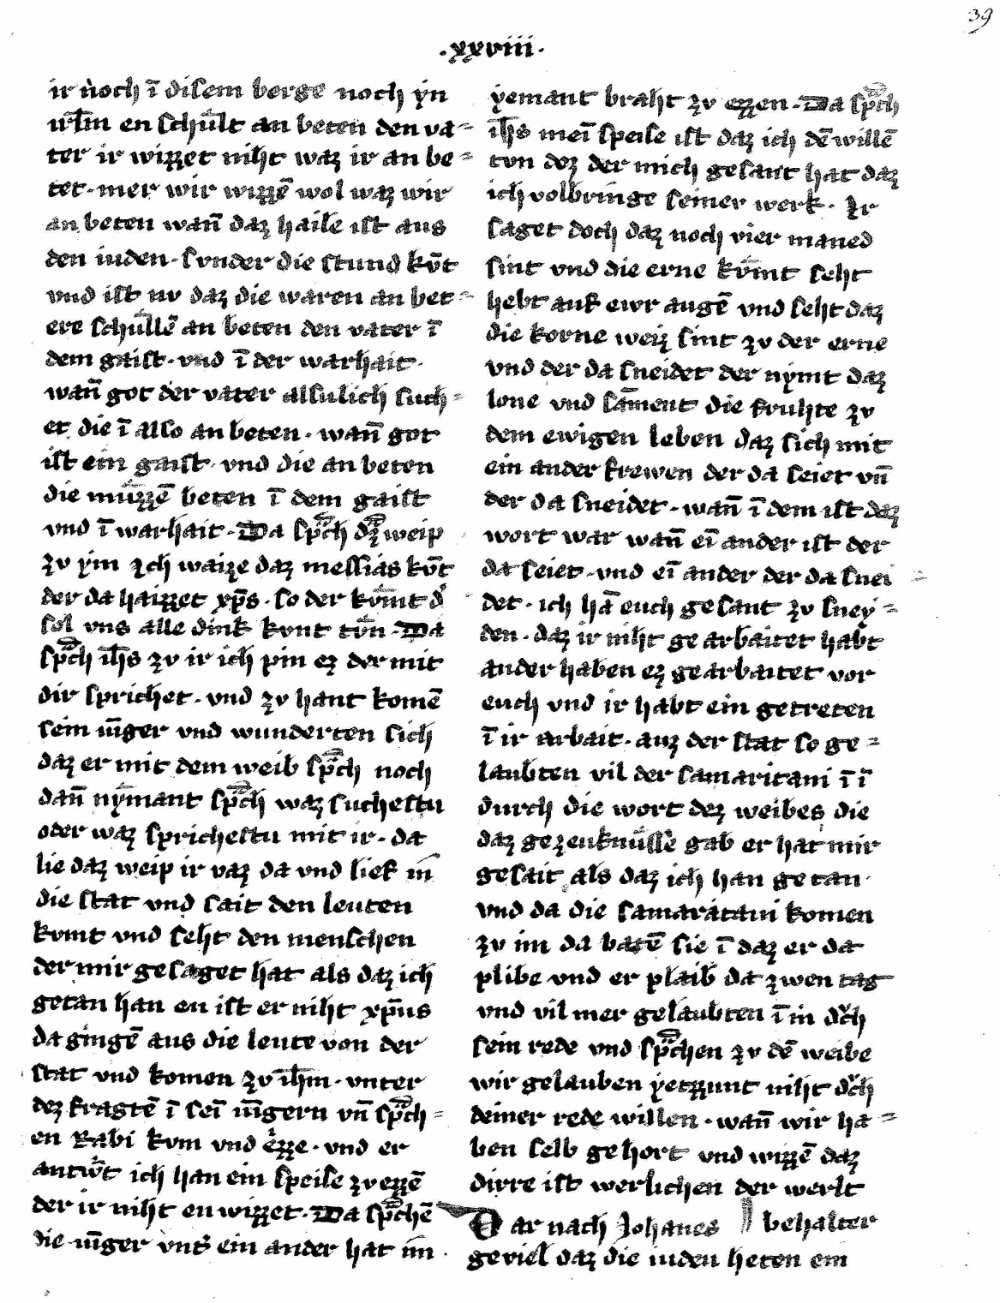 39
·xxviii·
ir noch ī disem berge noch yn
irl̄m en schult an beten den va=
ter ir wizzet niht waz ir an be=
tet· mer wir wizzē wol waz wir
an beten wan̄ daz haile ist aus
den iuden· sunder die stund kv̄t
vnd ist nv daz die waren an bet=
ere schullē an beten den vater ī
dem gaist· vnd ī der warhait·
wan̄ got der vater alsulich such=
et die ī also an beten· wan̄ got
ist ein gaist· vnd die an beten
die muͤzzē beten ī dem gaist
vnd ī warhait· Da sp̄ch dz weip
zv ym Ich waize daz messias kv̄t
der da haizzet xp̄s· so der kv̄mt d̓
sol vns alle dink kvnt tv̄n· Da
sp̄ch ih̄s zv ir ich pin ez der mit
dir sprichet· vnd zv hant komē
sein iūger vnd wunderten sich
daz er mit dem weib sp̄ch noch
dan̄ nymant sp̄ch waz suchestu
oder waz sprichestu mit ir· da
lie daz weip ir vaz da vnd lief in̄
die stat vnd sait den leuten
kvmt vnd seht den menschen
der mir gesaget hat als daz ich
getan han en ist er niht xp̄us
da gingē aus die leute von der
stat vnd komen zv ih̄m· vnter
dez fragtē ī sei̅ iūgern vn̄ sp̄ch=
en Rabi kvm vnd ezze· vnd er
antw̓t ich han ein speise zv ezzē
der ir niht en wizzet· Da sp̄chē
die iūger vnt̓ ein ander hat im
yemant braht zv ezzen· Da sp̄ch
ih̄s mei̅ speise ist daz ich dē willē
tvn dez der mich gesant hat daz
ich volbringe seinev werk· Ir
saget doch daz noch vier maned
sint vnd die erne kv̄mt seht
hebt auf ewr augē vnd seht daz
die korne weiz sint zv der erne
vnd der da sneidet der nymt daz
lone vnd sāment die fruhte zv
dem ewigen leben daz sich mit
ein ander frewen der da seiet vn̄
der da sneidet· wan̄ ī dem ist daz
wort war wan̄ ei̅ ander ist der
da seiet· vnd ei̅ ander der da snei=
det· ich hā euch gesant zv sney=
den· daz ir niht ge arbaitet habt
ander haben ez gearbaitet vor
euch vnd ir habt ein getreten
ī ir arbait· auz der stat so ge=
laubten vil der samaritani ī ī
durch die wort dez weibes die
daz gezenknüsse gab er hat mir
gesait als daz ich han getan·
vnd da die samaritani komen
zv im da batē sie ī daz er da
plibe vnd er plaib da zwen tag
vnd vil mer gelaubten ī in dv̓ch
sein rede vnd sp̄chen zv dē weibe
wir gelauben yetzzunt niht dv̓ch
deiner rede willen· wan̄ wir ha=
ben selb gehort vnd wizzē daz
dirre ist werlichen der werlt
Dar nach Johanes behalter
geviel daz die iuden heten ein